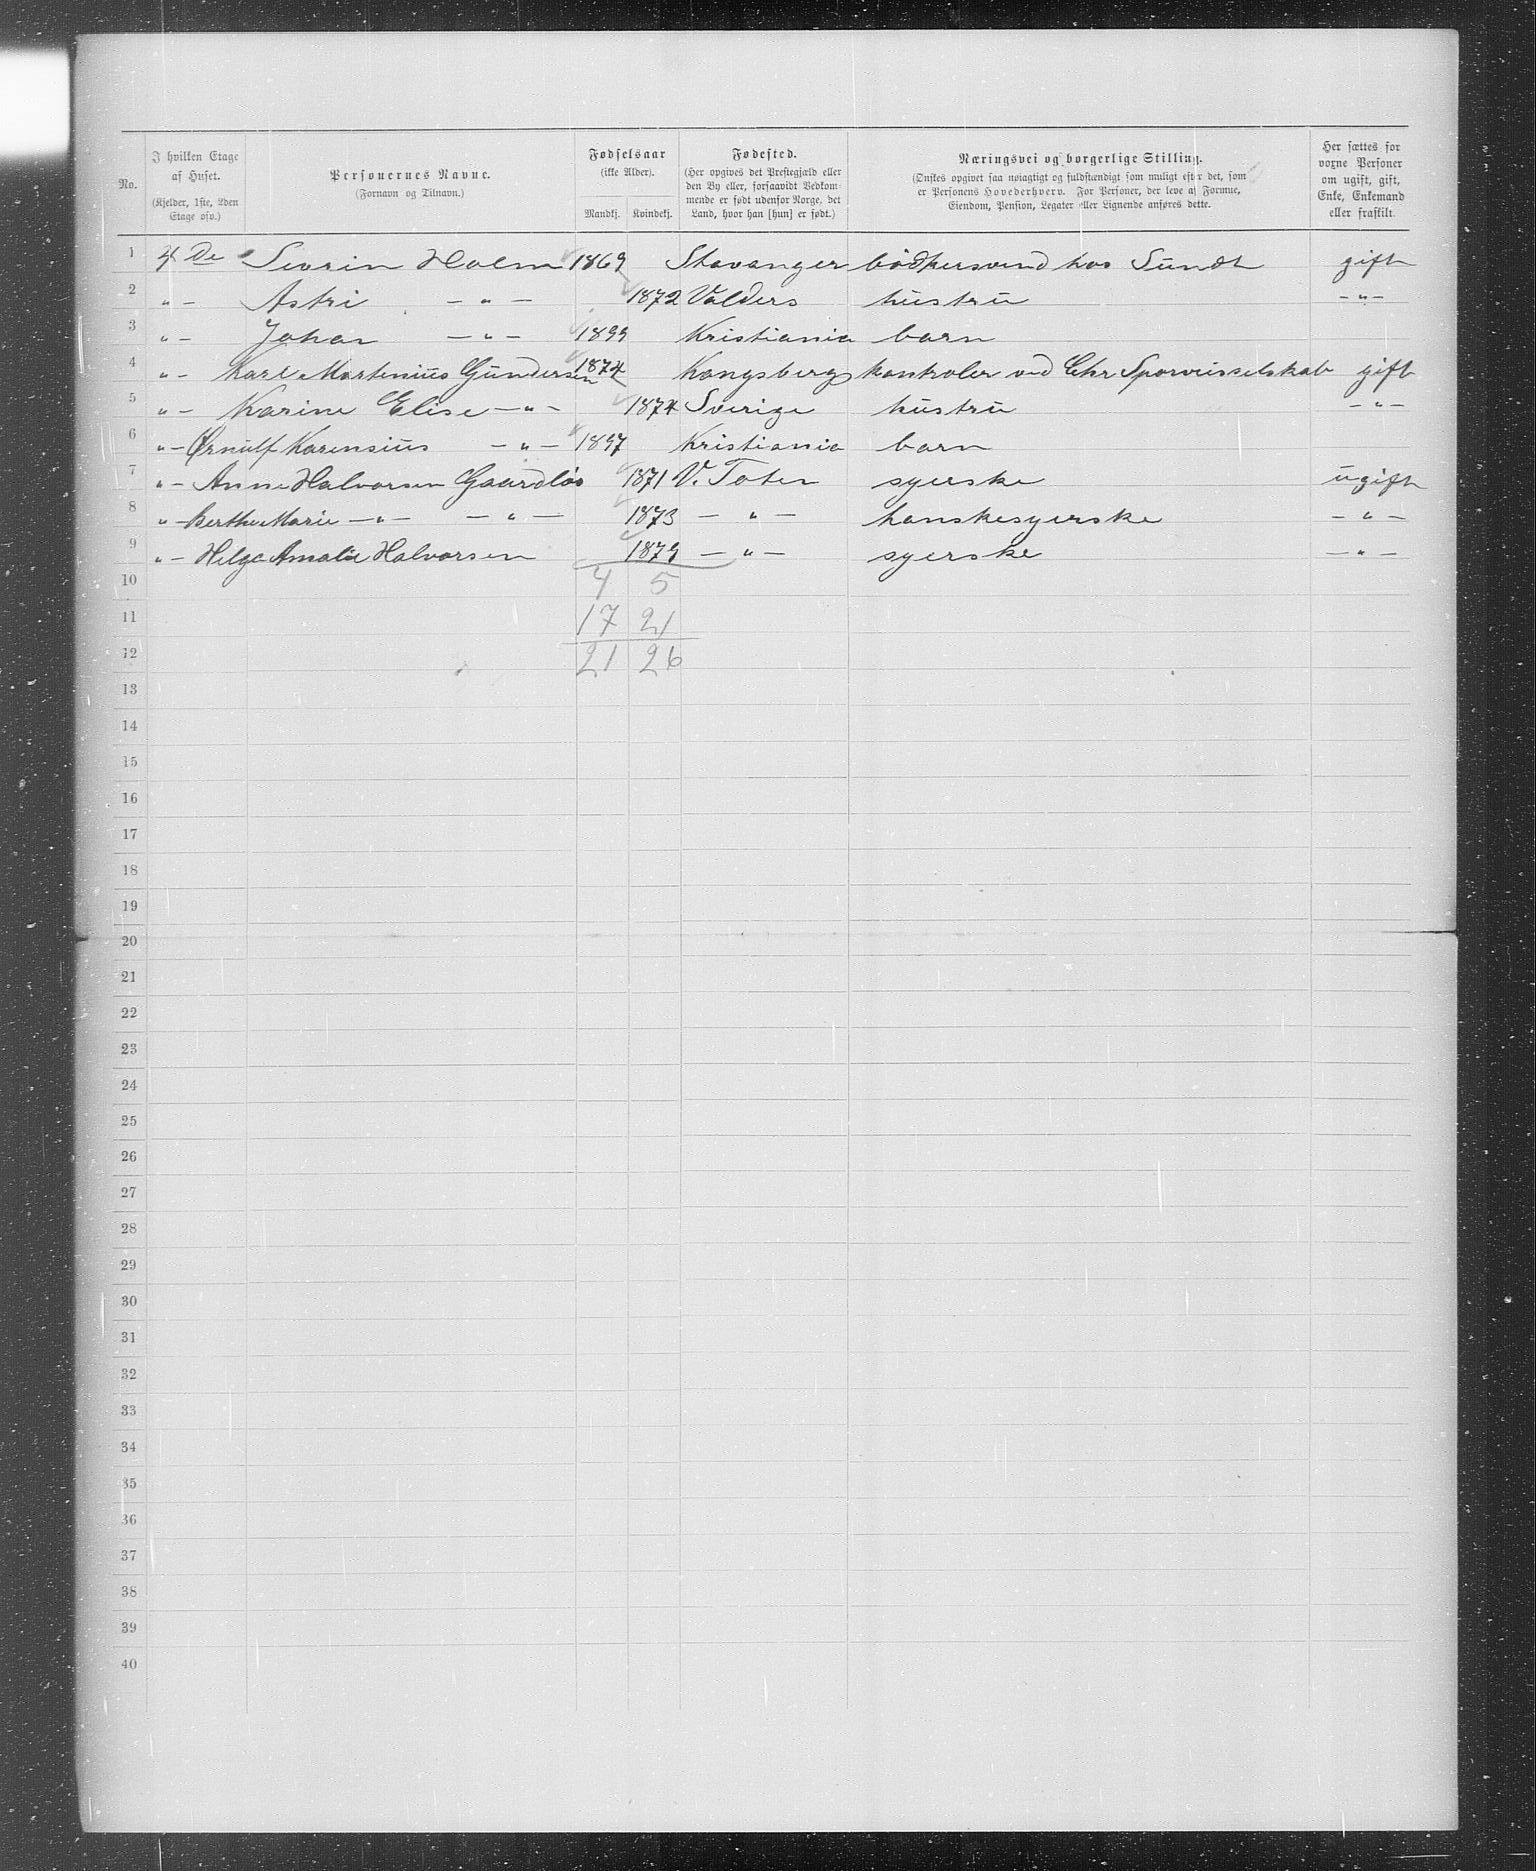 No.
I hvilken Etage af Huset. (Kjelder, 1ste, 2den Etage osv.)
Personernes Navne. (Fornavn og Tilnavn.)
Fødselsaar (ikke Alder). Mandkj. Kvindekj.
Fødested. (Her opgives det Prestegjæld eller den By eller, forsaavidt Vedkommende er født udenfor Norge, det Land, hvor han [hun] er født.)
Næringsvei og borgerlige Stilling. (Ønskes opgivet saa nøiagtigt og fuldstændigt som muligt efter det, som er Personens Hovederhverv. For Personer, der leve af Formue, Eiendom, Pension, Legater eller Lignende anføres dette.)
Her sættes for voxne Personer om ugift, gift, Enke, Enkemand eller fraskilt.
1 4 de Sevrin Holm 1869 Stavanger bødkersvend hos Sundt gift
2 " – Astri – " – 1872 Valders hustru – " –
3 " – Johan – " – 1899 Kristiania barn
4 " – Karl Martenius Gundersen 1874 Kongsberg kontrolør ved Chr Sporveisselskab gift
5 " – Karine Elise – " – 1874 Sverige hustru – " –
6 " – Ørnulf Karensius – " – 1897 Kristiania barn
7 " – Anne Halvorsen Gaardløs 1871 V. Toten syerske ugift
8 " – Berthe Marie – " – – " – 1873 – " – hanskesyerske – " –
9 " – Helga Amalie Halvorsen 1879 – " – syerske – " –
10 4 5
11 17 21
12 21 26
13
14
15
16
17
18
19
20
21
22
23
24
25
26
27
28
29
30
31
32
33
34
35
36
37
38
39
40